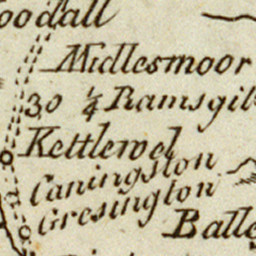 oodall
Midlesmoor
30 1/4 Ramsgil
Kettlewel
Caningston
Gresington
Balle